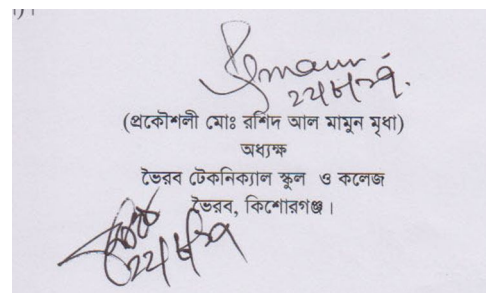 (প্রকৌশলী মোঃ রশিদ আল মামুন মৃধা)
অধ্যক্ষ
ভৈরব টেকনিক্যাল স্কুল ও কলেজ
ভৈরব, কিশোরগঞ্জ।